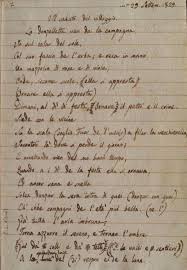 7 29 Settem. 1829.
Il sabato del villaggio
La donzelletta vien da la campagna
In sul calar del sole,
Col suo fascio de l'erba; e reca in mano
Un mazzolin di rose e di viole,
Onde, siccome suole, (ella s'appresta)
Ornare ella si appresta
Dimani, al dì di festa, il petto e il crine.
Siede con le vicine
Su la scala (soglia a filar la vecchierella
Incontro là dove si perde il giorno;
E novellando vien del suo buon tempo,
Quando a i dì de la festa ella si ornava
Ed ancor sana e snella
Solea danzar la sera intra di quei
Ch'ebbe compagni de l'età più bella.
Già tutta l'aria imbruna,
Torna azzurro il sereno, e tornan l'ombre
Giù da' colli e da' tetti
A la luna vespro e de la luna.